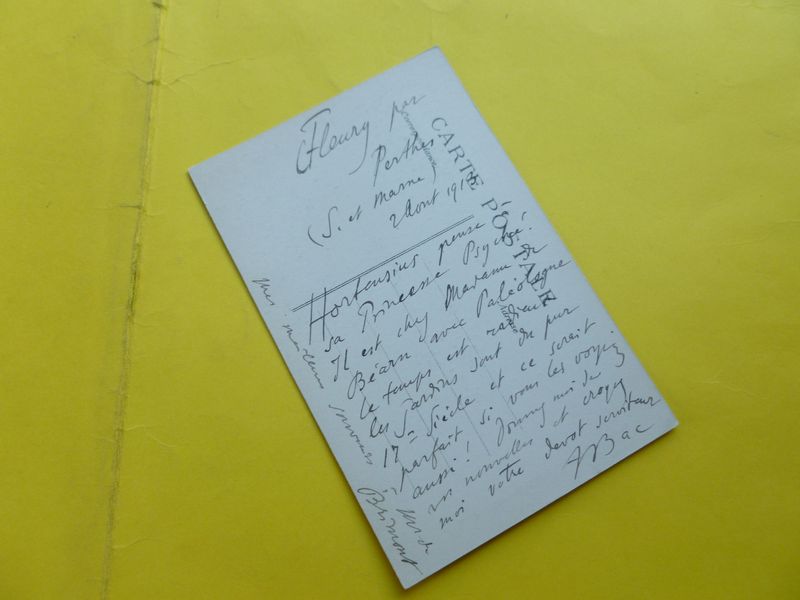 Fleury par
Perthes
(S. et Marne)
2 Aout 191
CARTE POSTALE
Hortensius pense à
sa Princesse Psyché!
Il est chez Madame de
Béarn avec Paléologue
le temps est radieux
les Jardins sont du pur
17me Siècle et ce serait
parfait si vous les voyiez
aussi! Donnez moi de
vos nouvelles et croyez
moi votre devot serviteur
Bac
Mes souvenirs
Brimont